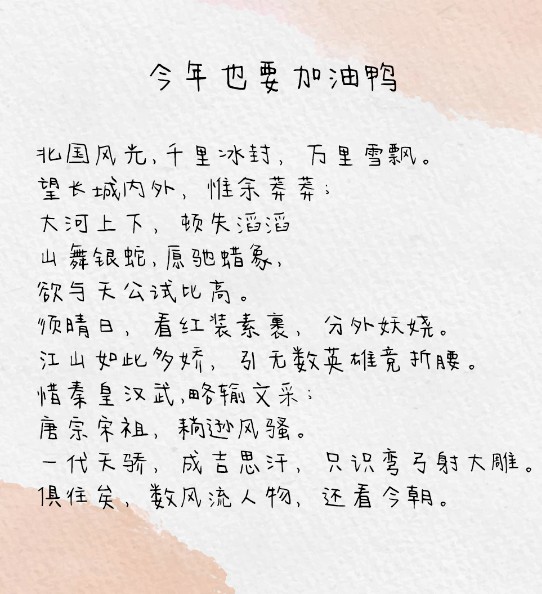 今年也要加油鸭
北国风光,千里冰封，万里雪飘。
望长城内外，惟余莽莽；
大河上下，顿失滔滔
山舞银蛇,原驰蜡象,
欲与天公试比高。
须晴日，看红装素裹，分外妖娆。
江山如此多娇，引无数英雄竞折腰。
惜秦皇汉武,略输文采；
唐宗宋祖，稍逊风骚。
一代天骄，成吉思汗，只识弯弓射大雕。
俱往矣，数风流人物，还看今朝。